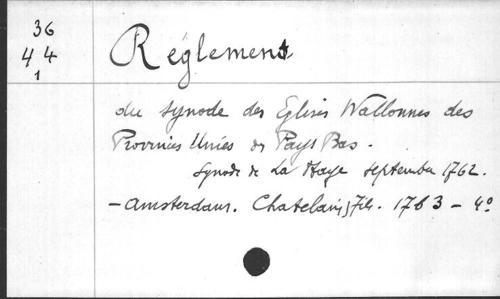 36
44
1
Réglement
du synode des Eglises Wallonnes des
Provinces Unies des Pays Bas.
Synode de La Haye September 1762.
- Amsterdam. Chatelain, fils. 1763 - 4º